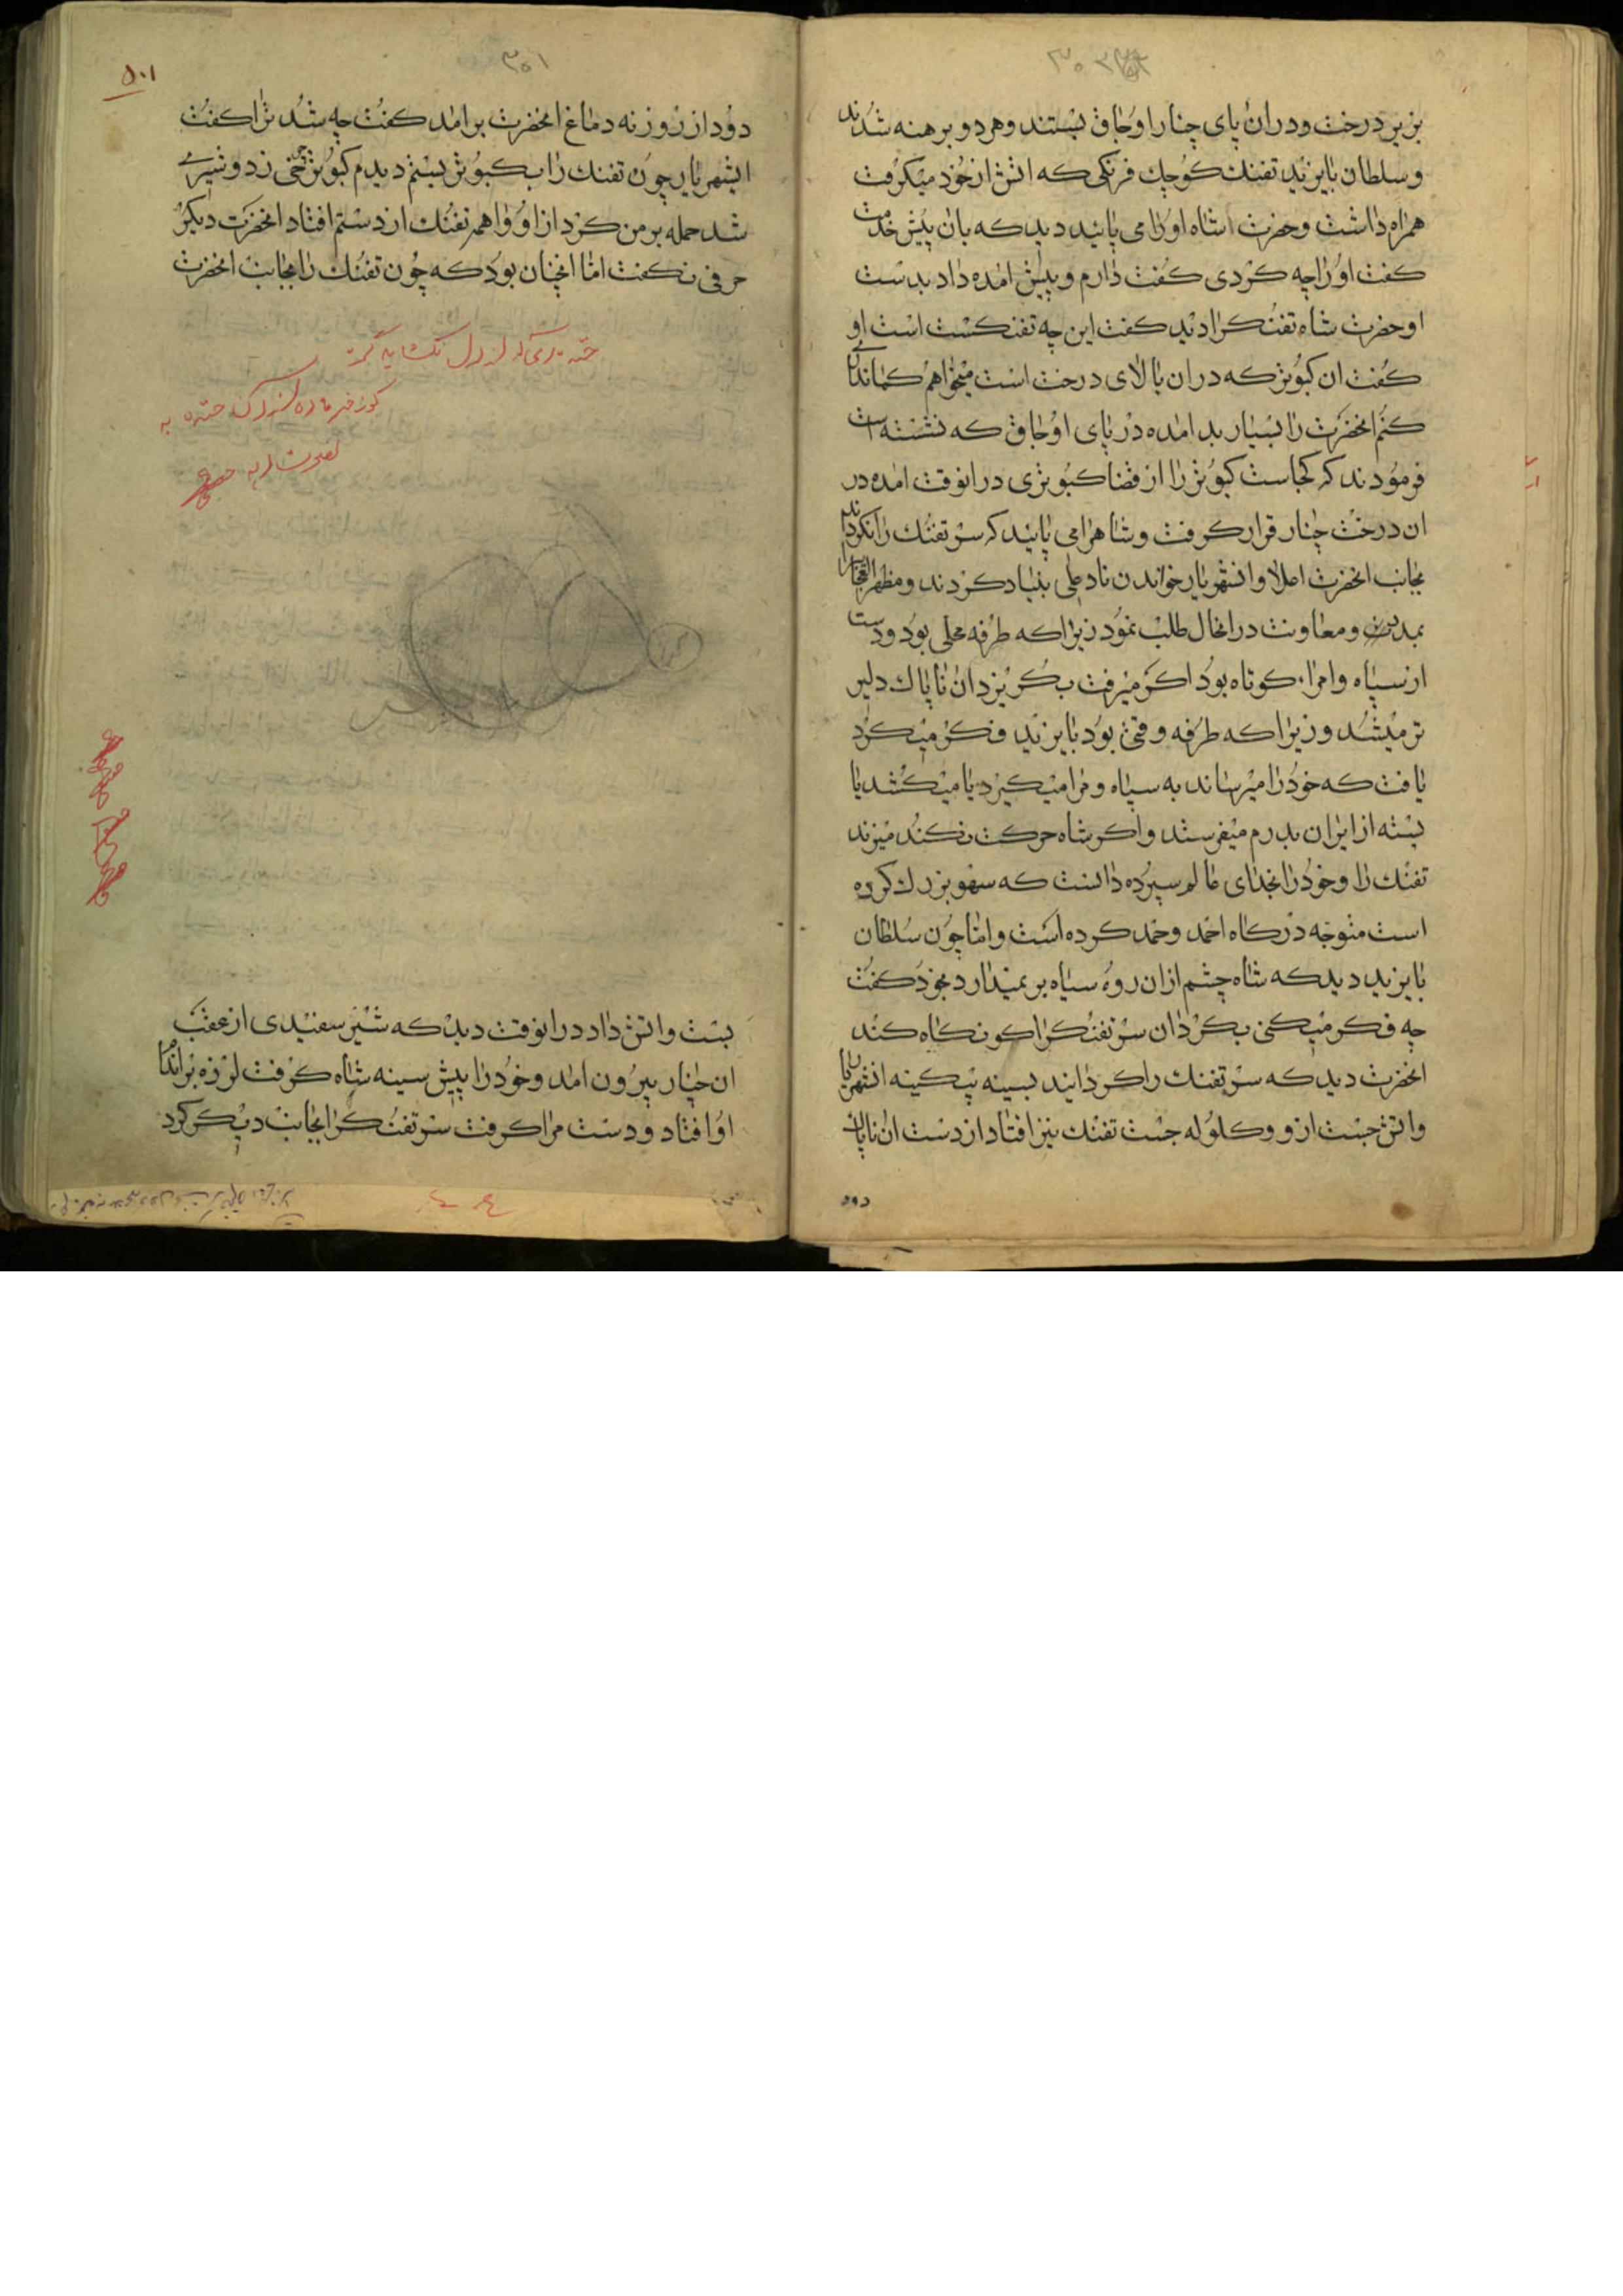 بزیر درخت و در ان پای چنار اوجاق بستند و هر دو برهنه شدند
و سلطان بایزید تفنک کوچک فرنکی که اتش از خود میکرفت
همراه داشت و حضرت شاه اورا می پایید دید که بان پیش خدمت
کفت اورا چه کردی کفت دارم و پیش امده داد بدست
او حضرت شاه تفنکرا دید کفت این چه تفنکست است او
کفت ان کبوتر که در ان بالای درخت است میخواهم کماندکی
کنم انحضرت را بسیار بد امده در پای اوجاق که نشسته است
فرمودند که کجاست کبوتر را از قضا کبوتری در انوقت امده در
ان درخت چنار قرار کرفت و شاهرا می پایید که سر تفنک را نکرداند
بجانب انحضرت اصلا و انشهریار خواندن ناد علی بنیاد کردند و مظهر العجایبرا
بمدد و معاونت در انحال طلب نمود زیرا که طرفه محلی بود و دست
از سپاه و امرا کوتاه بود اکر میرفت بکریزد ان ناپاک دلیر
تر میشد و زیرا که طرفه وقتی بود بایزید فکر میکرد
یافت که خود را میرساند به سپاه و مرا میکیرد یا میکشد یا
بسته از ایران بدرم میفرستد و اکر شاه حرکت نکند میزند
تفنک را و خود را بخدای عالم سپرده دانست که سهو بزرک کرده
است متوجه درکاه احمد و حمد کرده است و اما چون سلطان
بایزید دید که شاه چشم از ان روه سیاه بر نمیدارد بخود کفت
چه فکر میکنی بکردان سر تفنکرا کو نکاه کند
انحضرت دید که سر تفنک را کردانید بسینه بیکینه انشهریار
و اتش جست ازو و کلوله جست تفنک نیز افتاد از دست ان ناپاک
دود
۳۰۱
دود از روزنه دماغ انحضرت برامد کفت چه شد ترا کفت
ایشهریار چون تفنک را بکبوتر بستم دیدم کبوتر چرخی زد و شیری
شد حمله بر من کرد از او واهمه تفنک از دستم افتاد انحضرت دیکر
حرفی نکفت اما انچنان بود که چون تفنک را بجانب انحضرت
بست و اتش داد در انوقت دید که شیر سفیدی از عقب
ان چنار بیرون امد و خود را پیش سینه شاه کرفت لرزه بر اندام
او افتاد و دست مرا کرفت سر تفنکرا بجانب دیکر کرد